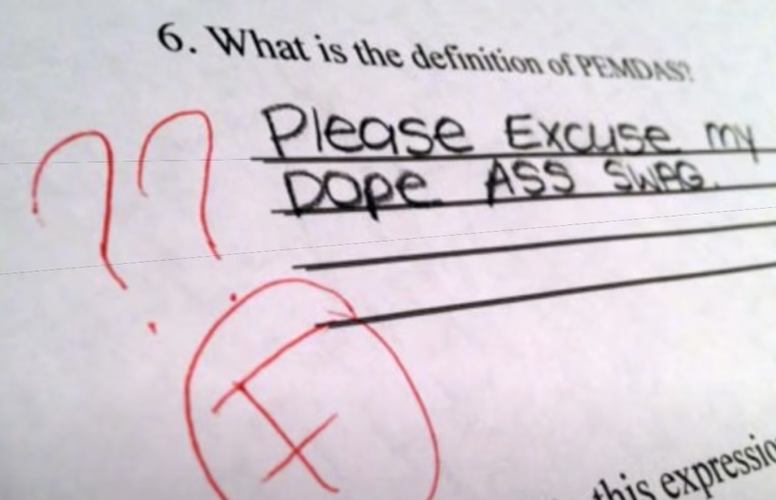 6. What is the definition of PEMDAS?
Please Excuse my
Dope ASS SWAG.
??
F
this expression